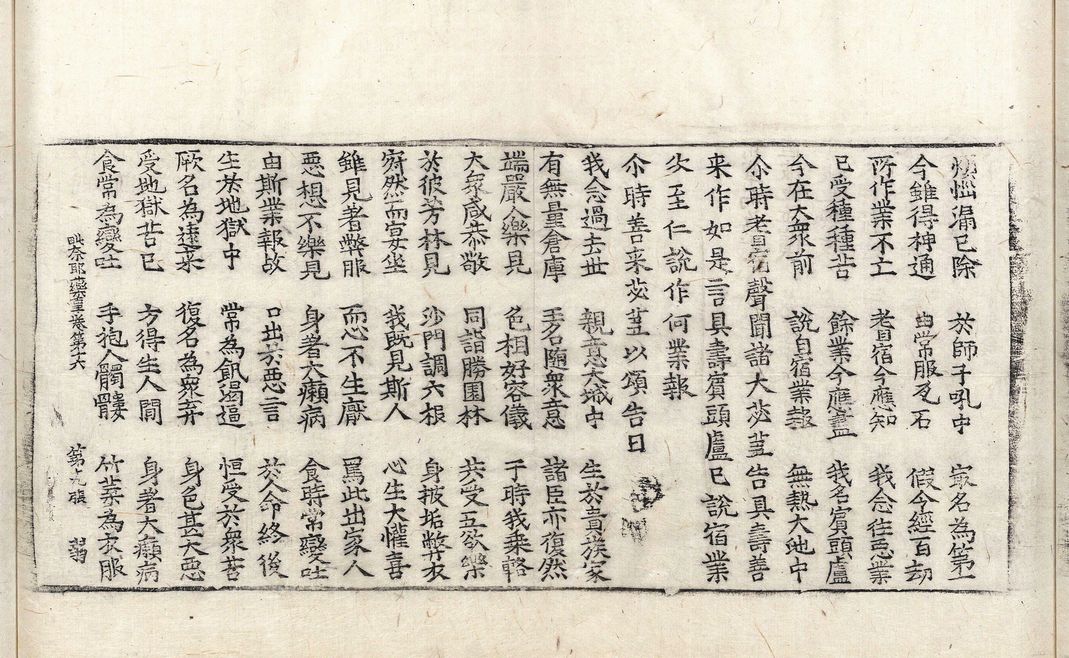 煩惱漏已除 於師子吼中 㝡名為第一
今雖得神通 由常服瓦石 假令經百劫
所作業不亡 耆宿今應知 我念往惡業
已受種種苦 餘業今應盡 我名賓頭盧
今在大衆前 說自宿業報 無熱大池中
尒時耆宿聲聞諸大苾芻告具壽善
来作如是言具壽賓頭盧已說宿業
次至仁說作何業報
尒時善来苾芻以頌告曰
我念過去世 親意大城中 生於貴族家
有無量倉庫 王名隨衆意 諸臣亦復然
端嚴人樂見 色相好容儀 于時我乘輅
大衆咸恭敬 同詣勝園林 共受五欲樂
於彼芳林見 沙門調六根 身披垢弊衣
寂然而宴坐 我既見斯人 心生大懽喜
雖見著弊服 而心不生厭 罵此出家人
惡想不樂見 身著大癩病 食時常變吐
由斯業報故 口出於惡言 於人命終後
生於地獄中 常為飢渴逼 恒受於衆苦
厥名為速来 復名為衆弃 身色甚大惡
受地獄苦已 方得生人間 身著大癩病
食常為變吐 手抱人髑髏 竹葉為衣服
毗奈耶藥事卷第十六 第九張 弱